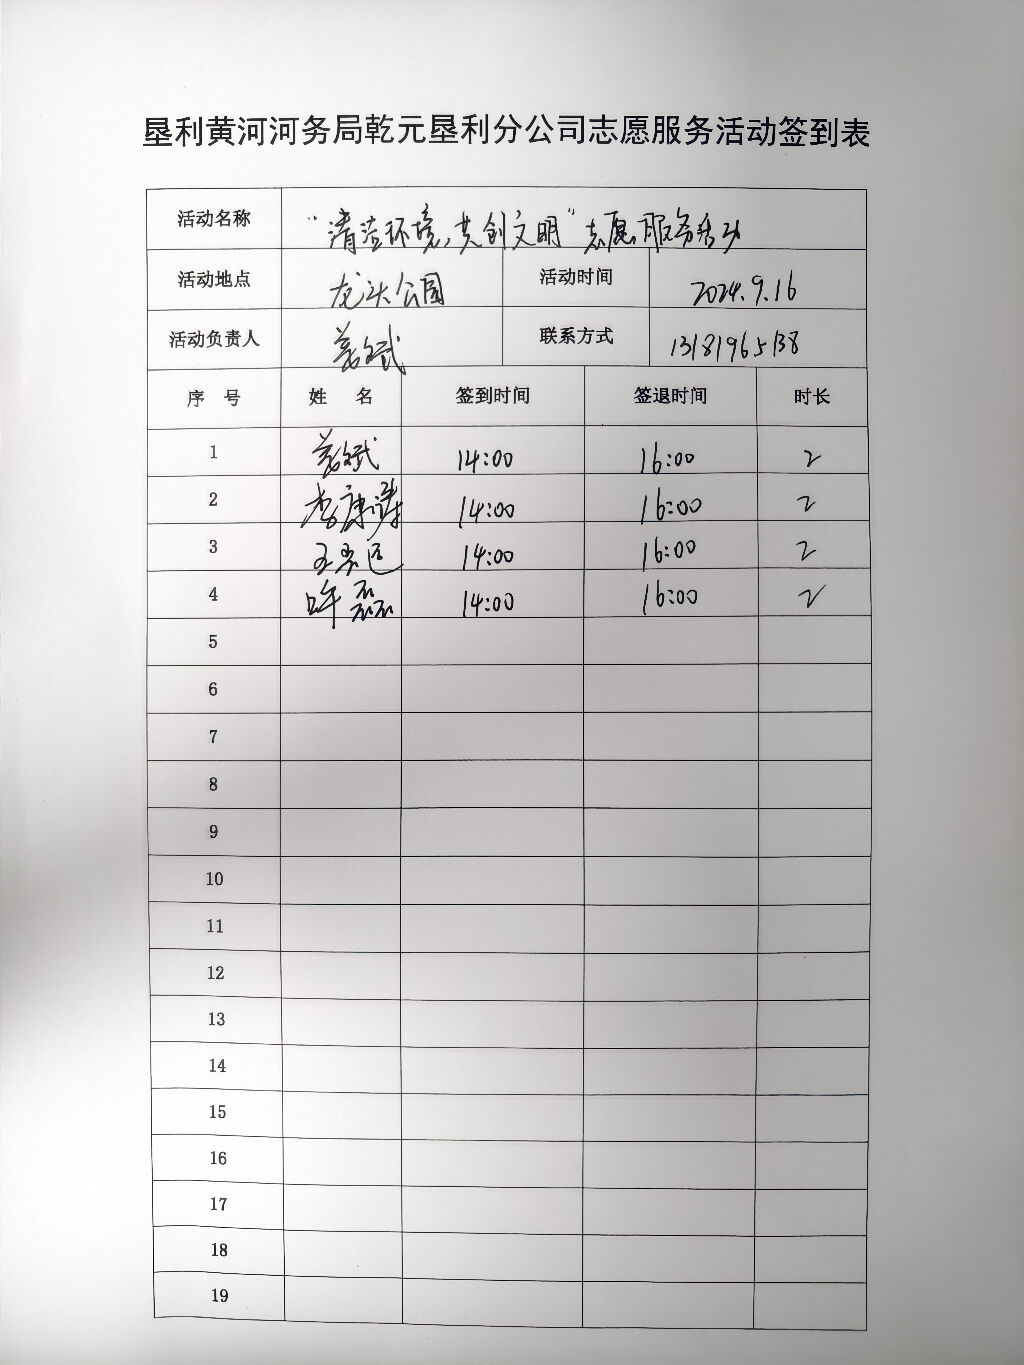 垦利黄河河务局乾元垦利分公司志愿服务活动签到表
活动名称 "清洁环境,共创文明"志愿服务活动
活动地点 龙头公园 活动时间 2024.9.16
活动负责人 联系方式 13181965138
序 号 姓 名 签到时间 签退时间 时长
1 14:00 16:00 2
2 李康涛 14:00 16:00 2
3 14:00 16:00 2
4 牟磊 14:00 16:00 2
5
6
7
8
9
10
11
12
13
14
15
16
17
18
19